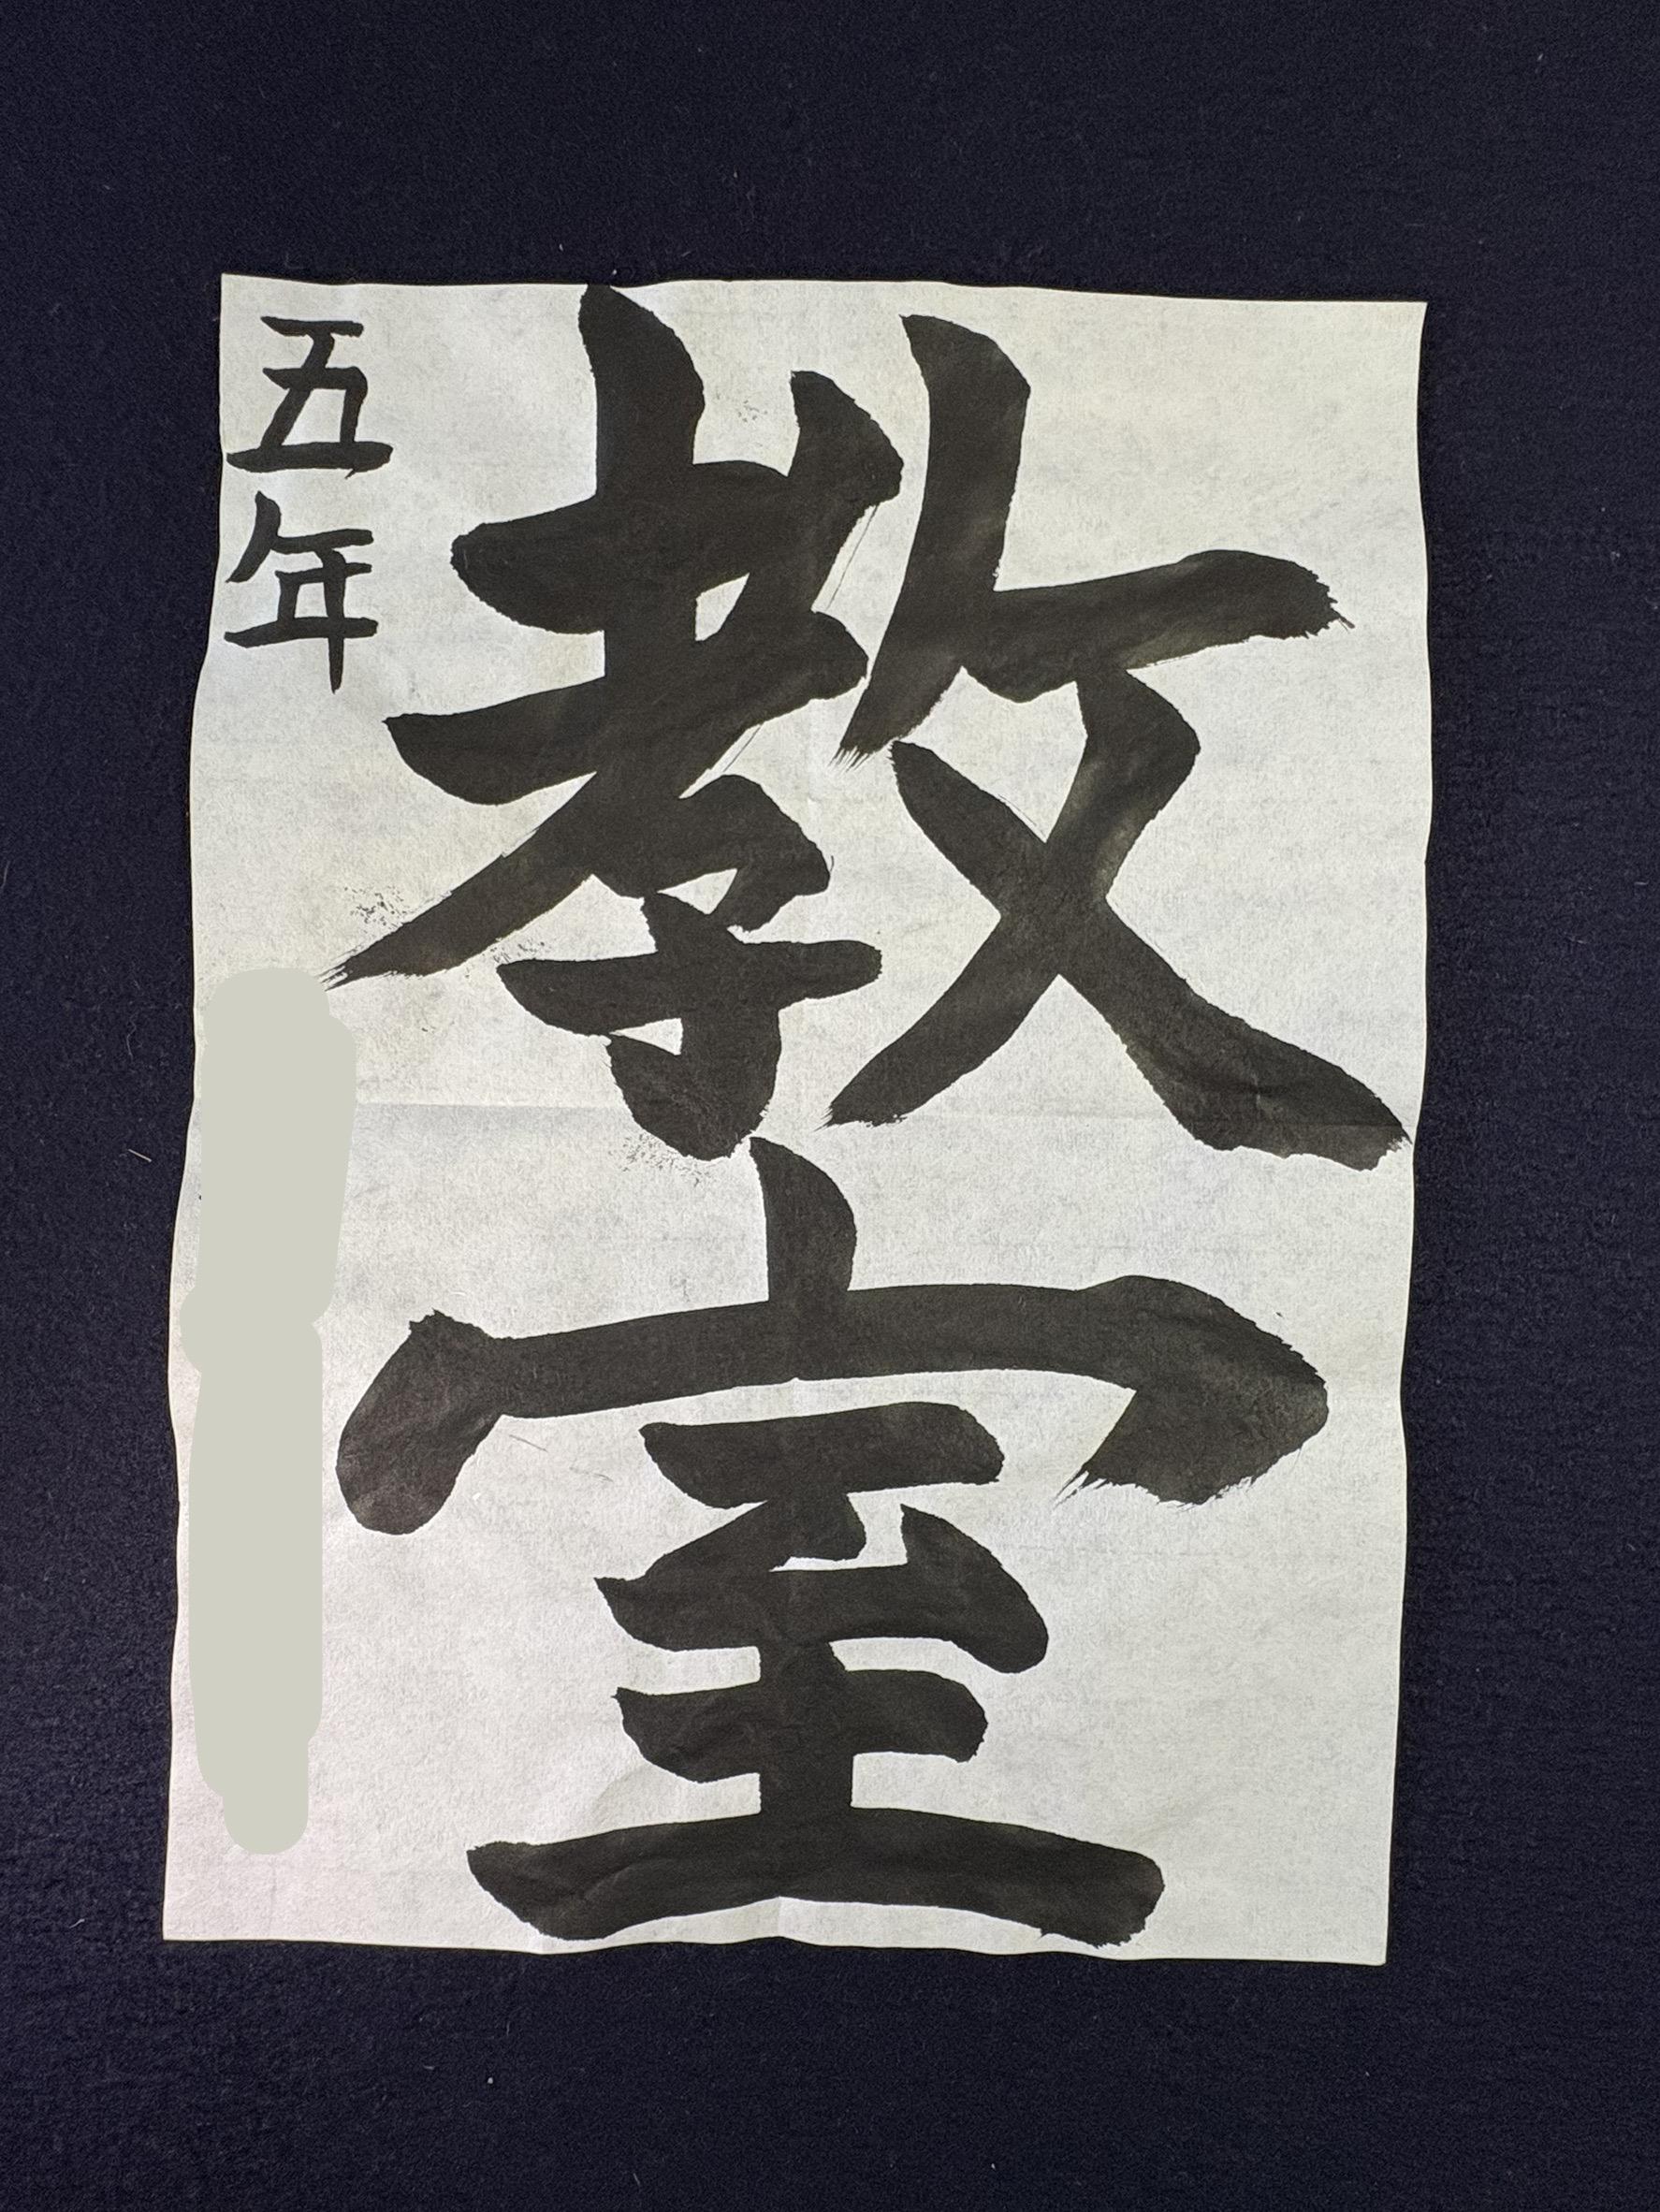 教室
五年